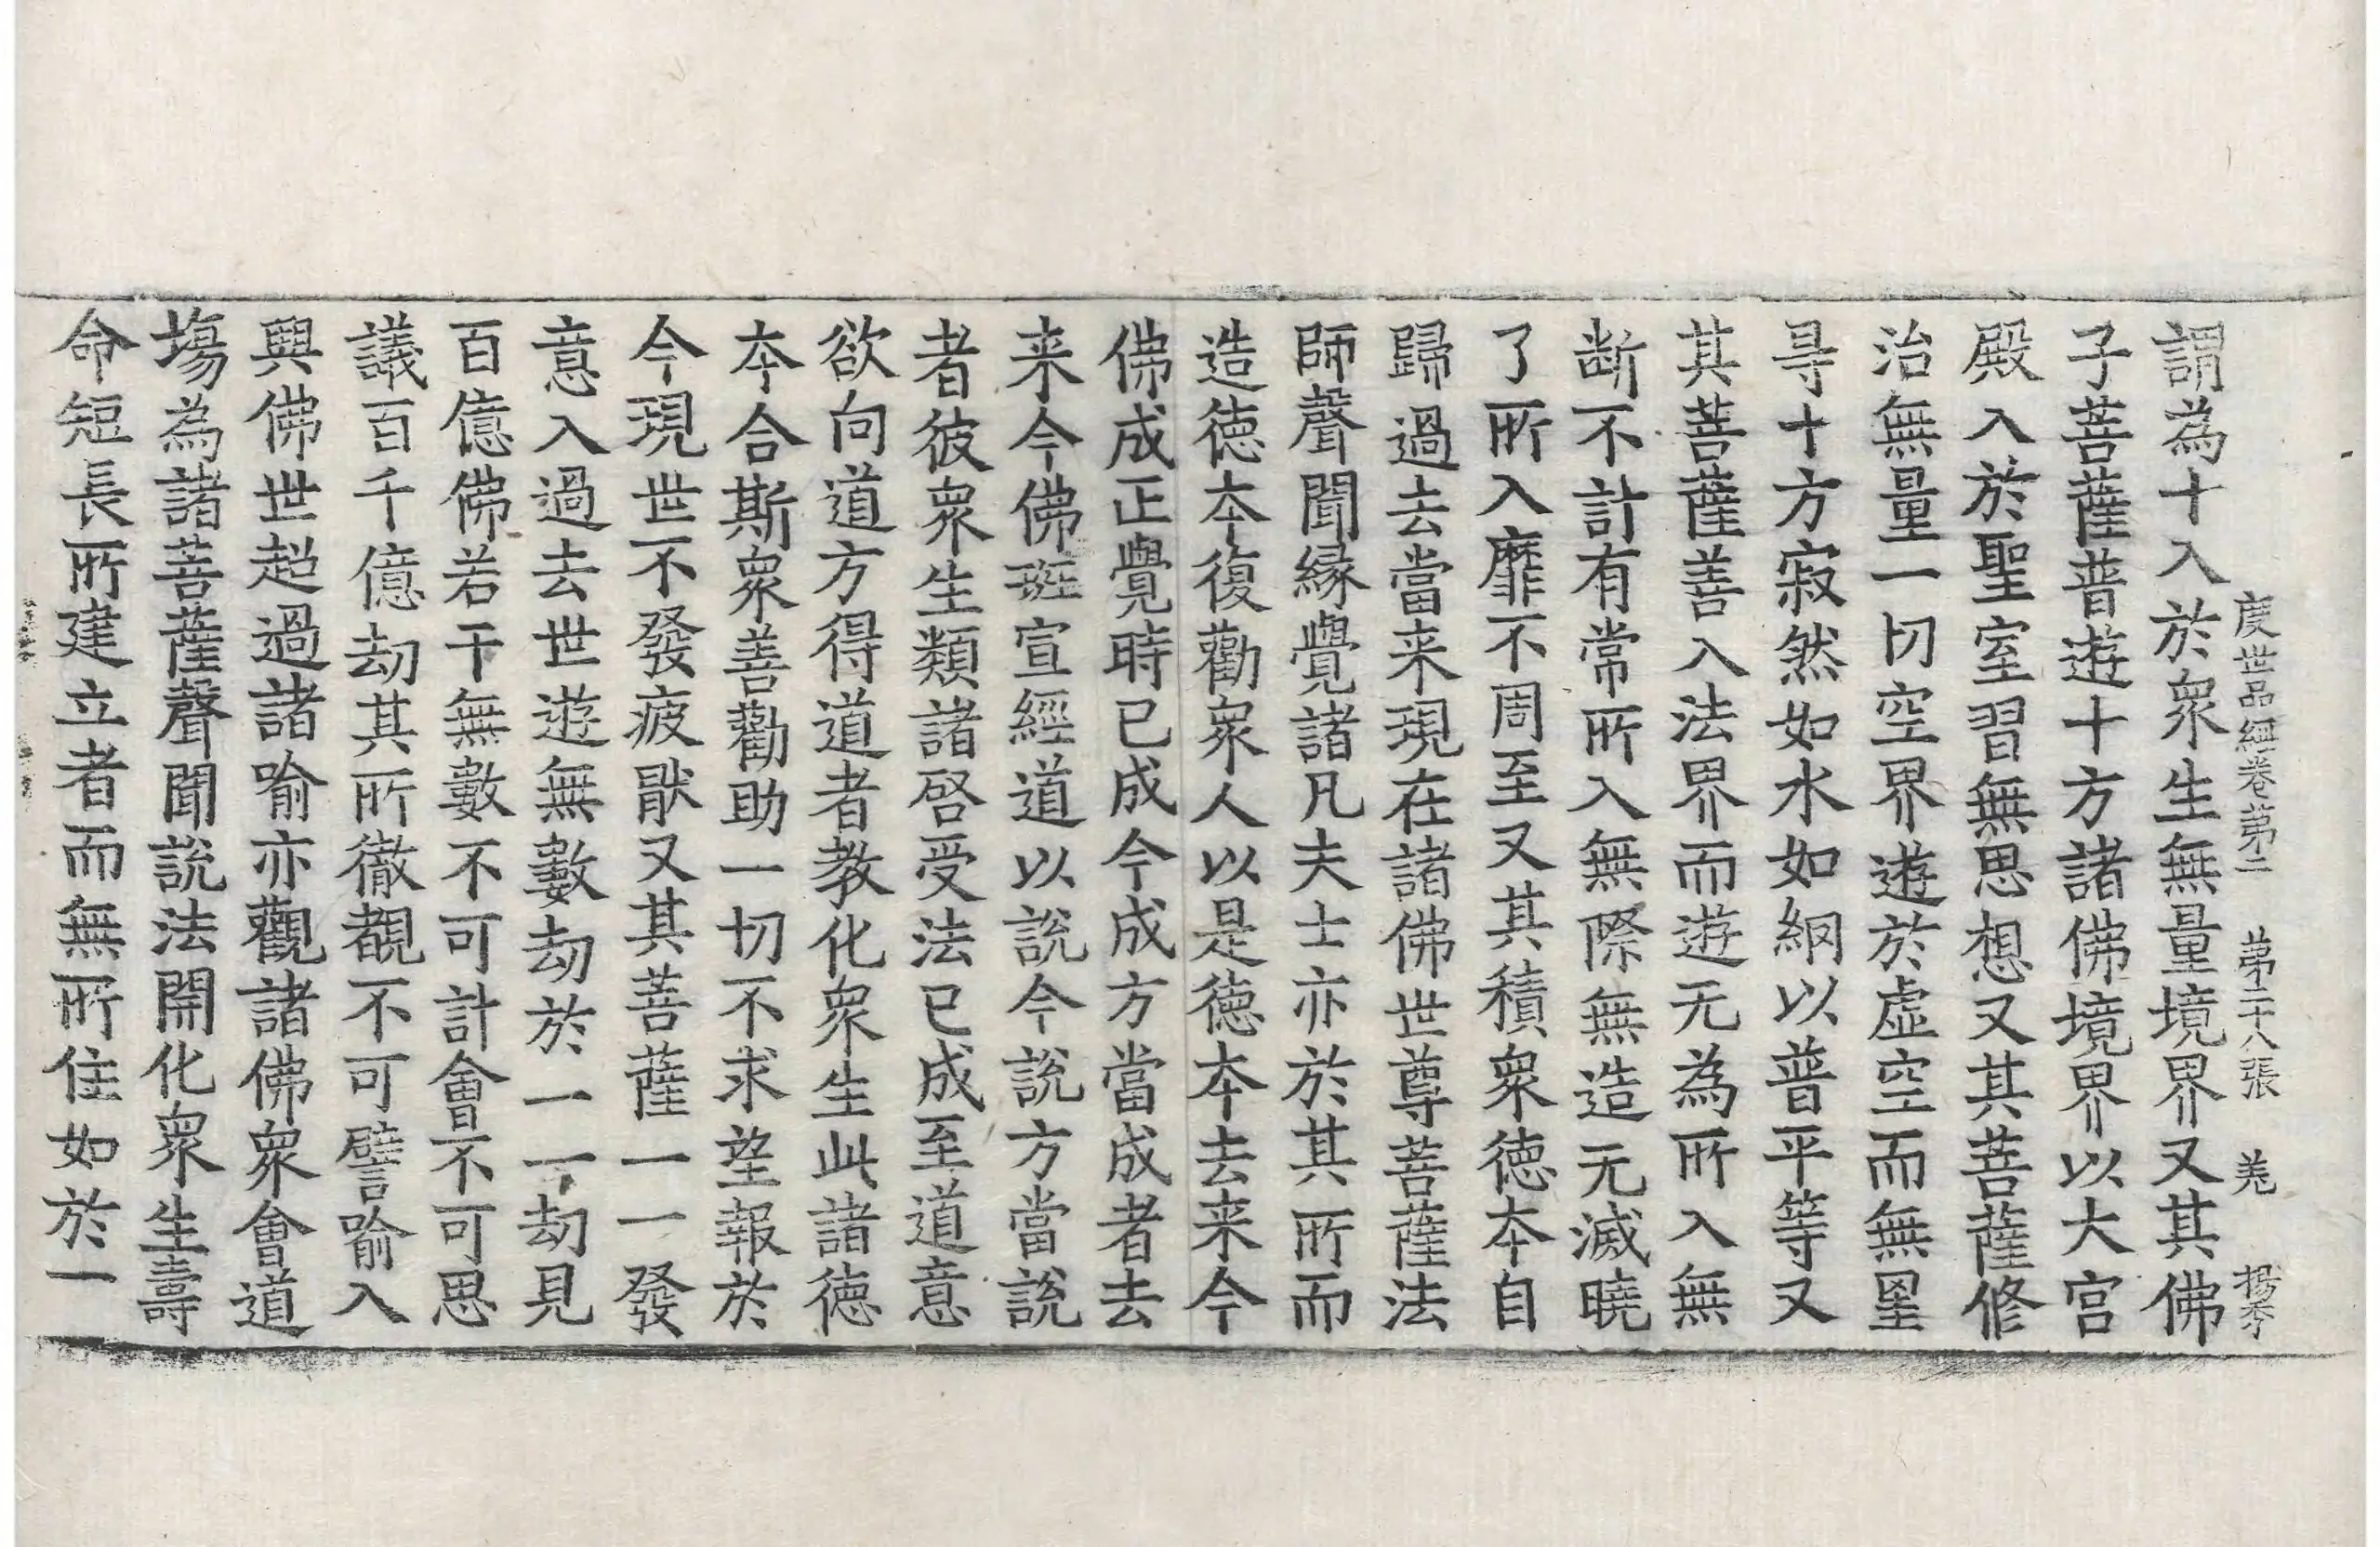 度世品經卷第二　第二十八張　羌　揚秀
謂為十入於衆生無量境界又其佛
子菩薩普遊十方諸佛境界以大宮
殿入於聖室習無思想又其菩薩修
治無量一切空界遊於虛空而無罣
㝵十方寂然如水如網以普平等又
其菩薩善入法界而遊无為所入無
断不計有常所入無際無造无滅曉
了所入靡不周至又其積衆徳本自
歸過去當来現在諸佛世尊菩薩法
師聲聞緣覺諸凡夫士亦於其所而
造徳本復勸衆人以是徳本去来今
佛成正覺時已成今成方當成者去
来今佛班宣經道以說今說方當說
者彼衆生類諸啓受法已成至道意
欲向道方得道者教化衆生此諸徳
本合斯衆善勸助一切不求望報於
今現世不發疲猒又其菩薩一一發
意入過去世遊無數劫於一一劫見
百億佛若干無數不可計會不可思
議百千億劫其所徹覩不可譬喻入
與佛世超過諸喻亦觀諸佛衆會道
塲為諸菩薩聲聞說法開化衆生壽
命短長所建立者而無所住如於一